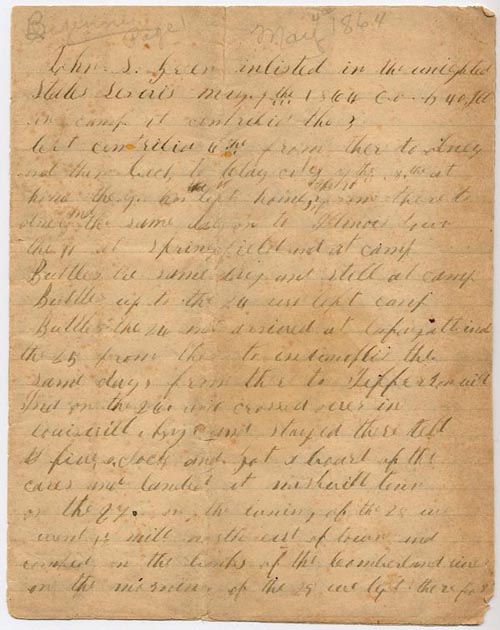 Beginning
Page 1
May 1864
John S. Green inlisted in the
States Servis May the 1864 Co
in camp at centrilia the 3
left centrilia 6 the from ther to olney
and then back to the at
home the 9 left home from there to
olney and the same day on to Ilinois town
the 11 at Springfield and at camp
Buttler the same day and still at camp
Buttler up to the 24 we left camp
Buttler the 24 and arived at lafayatt ind
the 25 from ther to the
same day from ther to Jefferson vill
Ind on the 26 and crossed over in
louisvill and stayed there tell
5 o clock and got a board of the
cares and landed at nashvill tenn
on the 27. on the evning of the 28 we
went mile north east of town and
camped on the banks of the comberland river
on the morning of the 29 we left there for